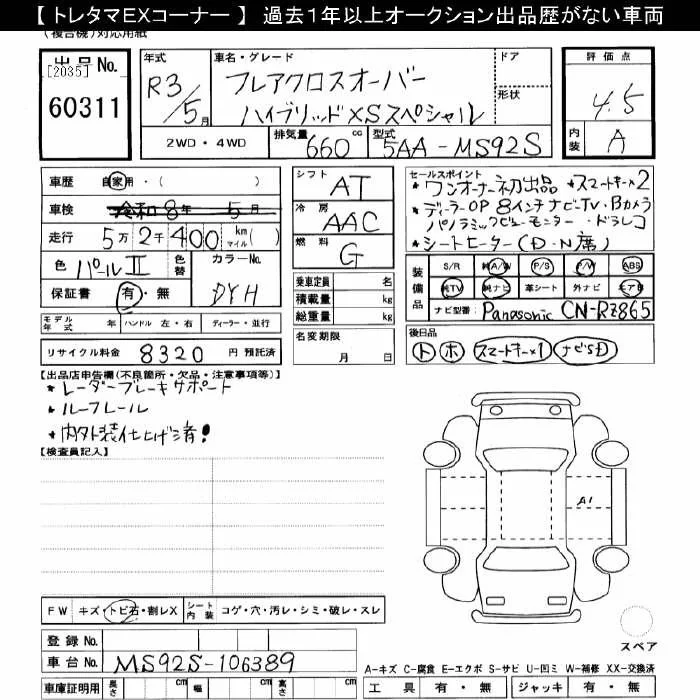 【トレタマEXコーナー】 過去1年以上オークション出品歴がない車両
(複合機)対応用紙
出品No. [2035]
60311
年式 R3/5月
車名・グレード
フレアクロスオーバー
ハイブリッドXSスペシャル
ドア
形状
評価点
4.5
内装 A
2WD・4WD 排気量 660cc 型式 5AA-MS92S
車歴 自家用・( )
車検 令和8年 5月
走行 5万2千400 km マイル( )
色 パールII 色替 カラーNo. DYH
保証書 有・無
モデル年式 年 ハンドル 左・右 ディーラー・並行
リサイクル料金 8320 円 預託済
シフト AT
冷房 AAC
燃料 G
乗車定員 名
積載量 kg
総重量 kg
名変期限
月 日
セールスポイント
*ワンオーナー初出品 *スマートキー2
*ディーラーOP 8インチナビ・TV・Bカメラ
パノラミックビューモニター・ドラレコ
*シートヒーター(D・N席)
装備品 S/R 純A/W P/S P/W ABS
純TV 純ナビ 革シート 外ナビ エアB
ナビ型番: Panasonic CN-RZ865
後日品
ト ホ スマートキー×1 ナビSD
【出品店申告欄(不良箇所・欠品・注意事項等)】
*レーダーブレーキサポート
*ルーフレール
*内外装仕上げ済!
【検査員記入】
A1
FW キズ・トビ石・割レX シート内装 コゲ・穴・汚レ・シミ・破レ・スレ
登録No.
車台No. MS92S-106389
車庫証明用 長さ cm 幅 cm 高さ cm
スペア
A-キズ C-腐食 E-エクボ S-サビ U-凹ミ W-補修 XX-交換済
工具 有・無 ジャッキ 有・無